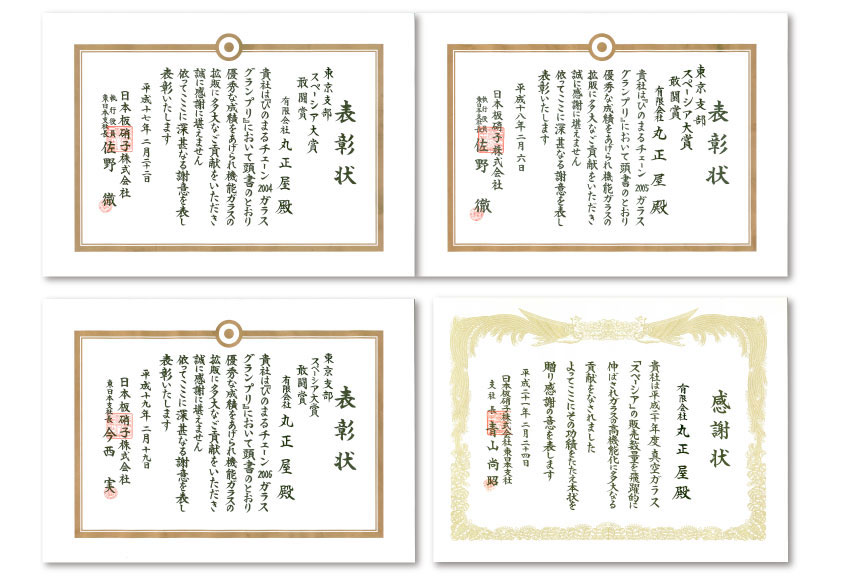 表彰状
東京支部
スペーシア大賞
敢闘賞
有限会社 丸正屋 殿
貴社はぴのまるチェーン2004ガラス
グランプリ』において頭書のとおり
優秀な成績をあげられ機能ガラスの
拡販に多大なご貢献をいただき
誠に感謝に堪えません
依ってここに深甚なる謝意を表し
表彰いたします
平成十七年二月二十二日
日本板硝子株式会社
執行役員
東日本支社長 佐野 徹
表彰状
東京支部
スペーシア大賞
敢闘賞
有限会社 丸正屋 殿
貴社はぴのまるチェーン2005ガラス
グランプリ』において頭書のとおり
優秀な成績をあげられ機能ガラスの
拡販に多大なご貢献をいただき
誠に感謝に堪えません
依ってここに深甚なる謝意を表し
表彰いたします
平成十八年二月六日
日本板硝子株式会社
執行役員
東日本支社長 佐野 徹
表彰状
東京支部
スペーシア大賞
敢闘賞
有限会社 丸正屋 殿
貴社はぴのまるチェーン2006ガラス
グランプリ』において頭書のとおり
優秀な成績をあげられ機能ガラスの
拡販に多大なご貢献をいただき
誠に感謝に堪えません
依ってここに深甚なる謝意を表し
表彰いたします
平成十九年二月十九日
日本板硝子株式会社
東日本支社長 今西 実
感謝状
有限会社 丸正屋 殿
貴社は平成二十年度真空ガラス
「スペーシア」の販売数量を飛躍的に
伸ばされガラスの高機能化に多大なる
貢献をなされました
よってここにその功績をたたえ本状を
贈り感謝の意を表します
平成二十一年二月二十四日
日本板硝子株式会社東日本支社
支社長 青山尚昭